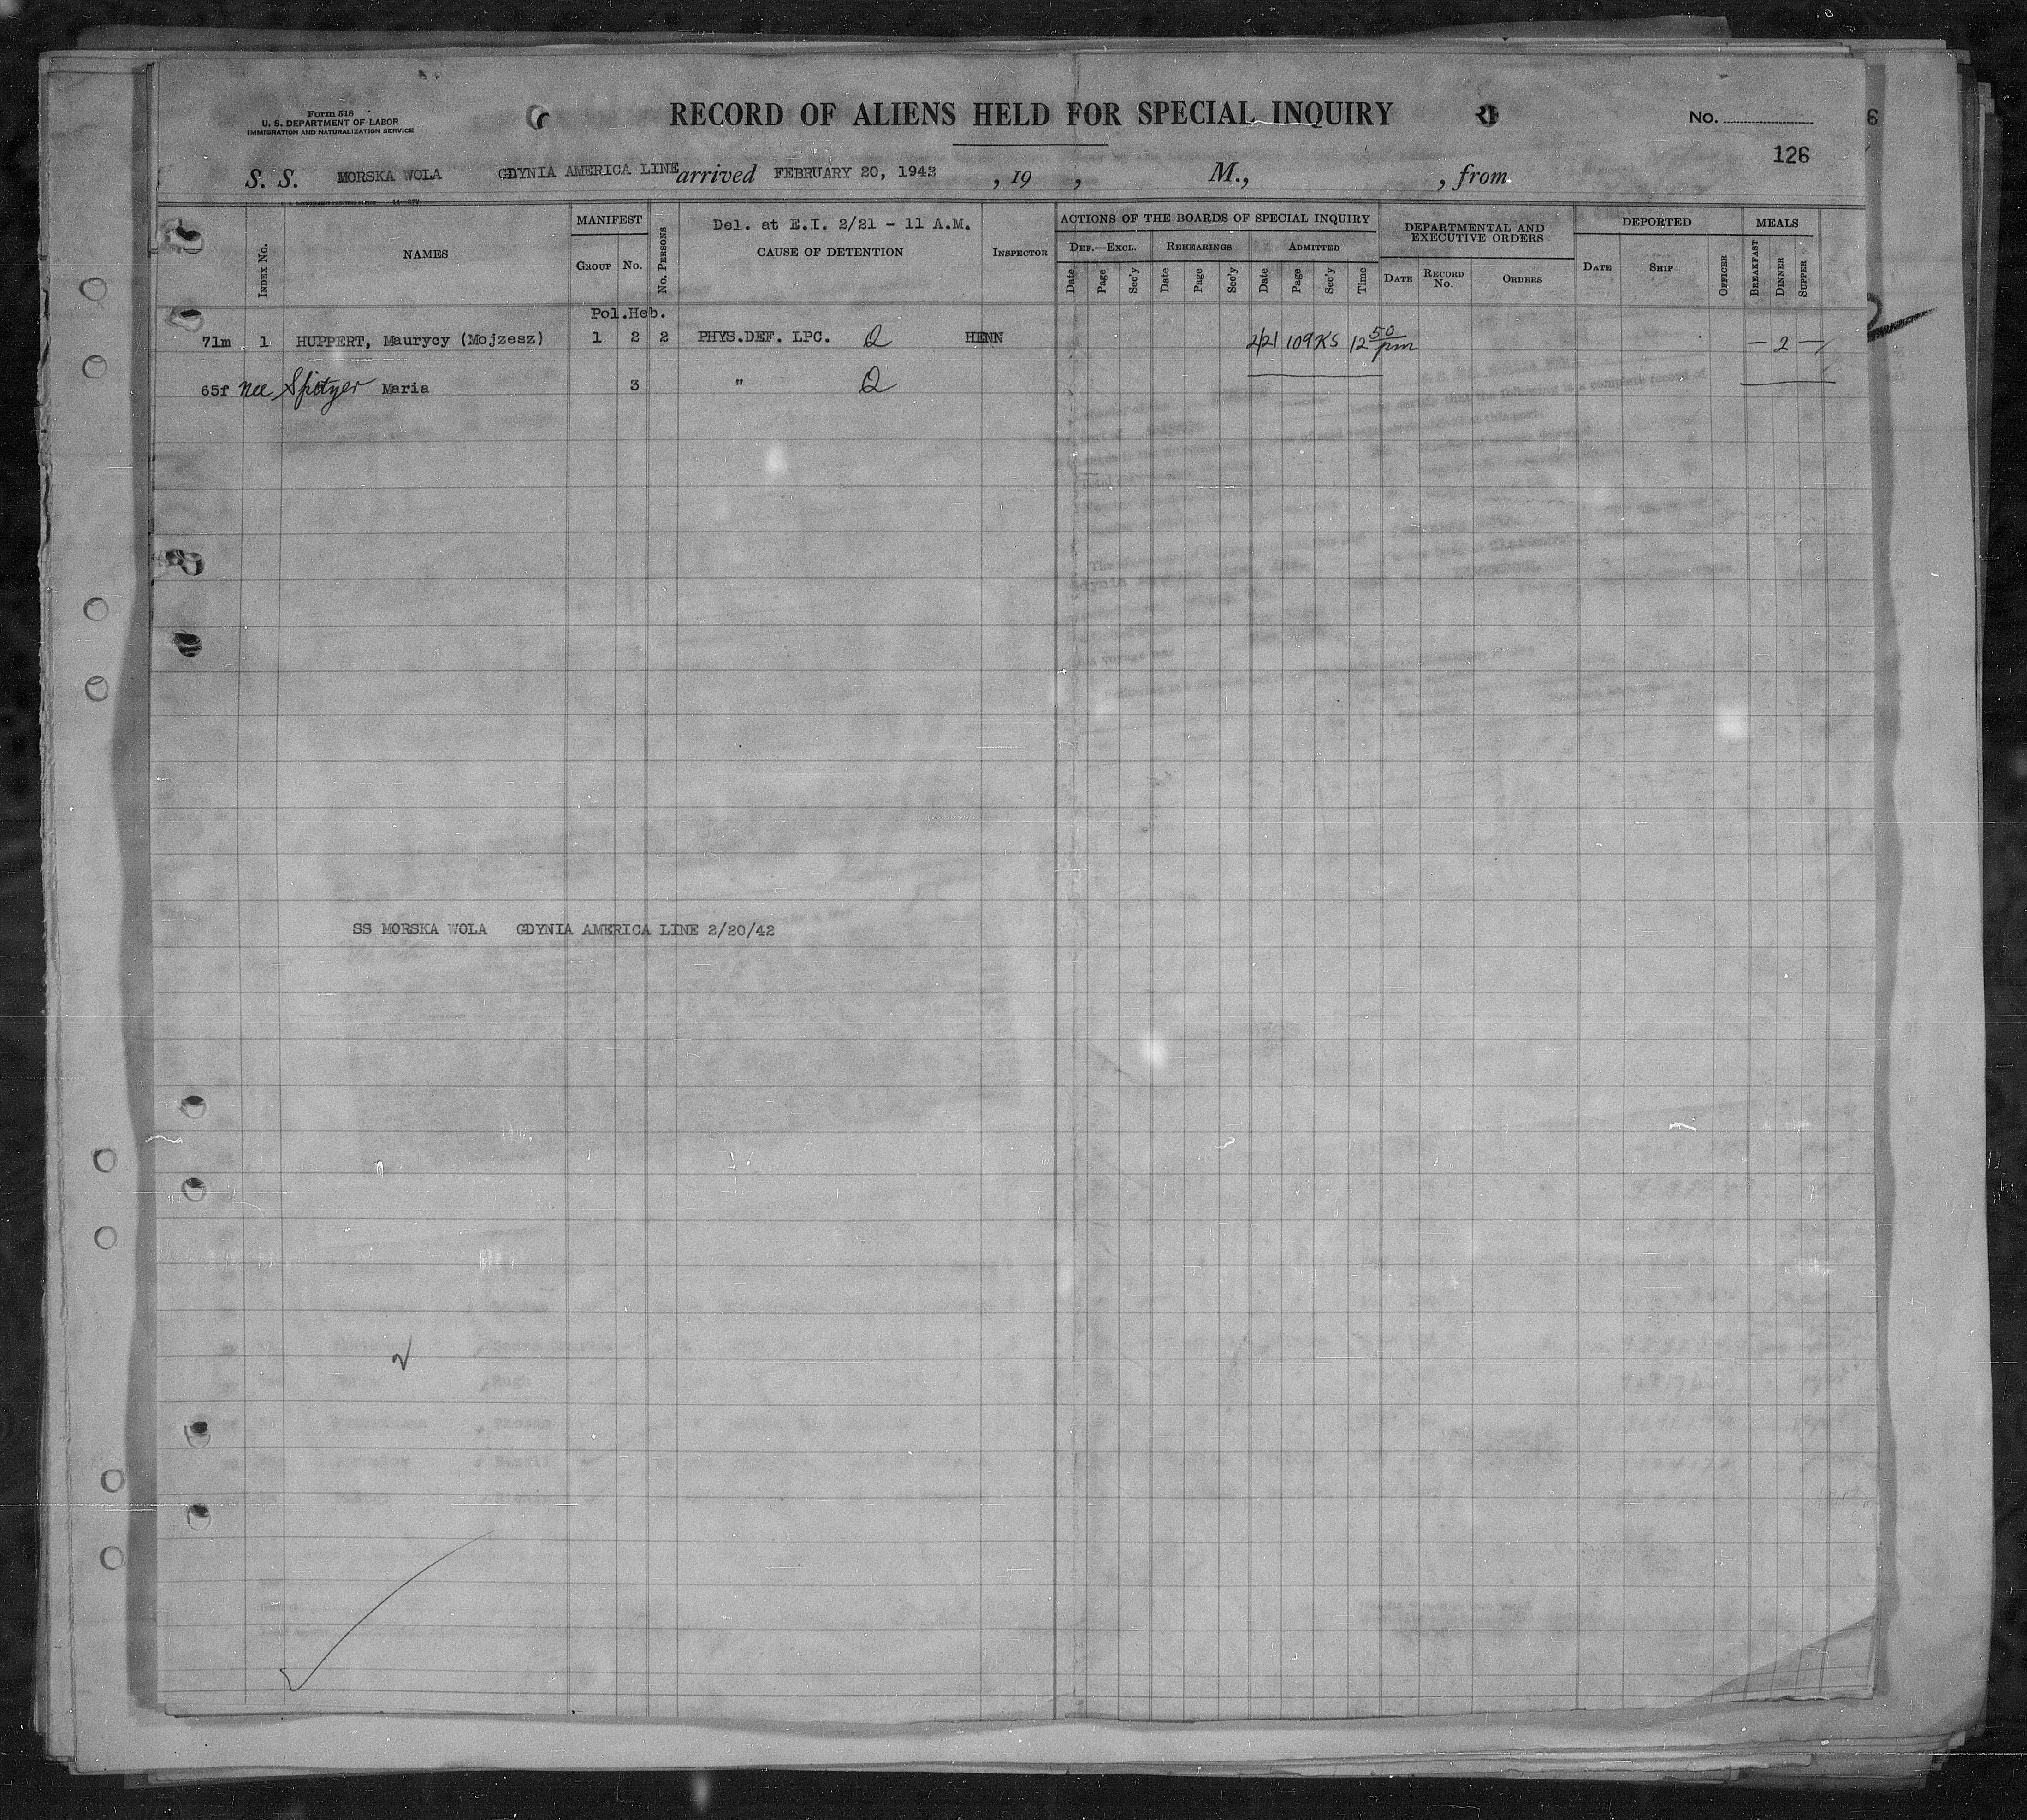 Form 518
U. S. DEPARTMENT OF LABOR
IMMIGRATION AND NATURALIZATION SERVICE
RECORD OF ALIENS HELD FOR SPECIAL INQUIRY
No.
126
S. S. MORSKA WOLA GDYNIA AMERICA LINE arrived FEBRUARY 20, 1942 , 19 , M., , from
Index No.
NAMES
MANIFEST
Group No.
No. Persons
Del. at E.I. 2/21 - 11 A.M.
CAUSE OF DETENTION
Inspector
ACTIONS OF THE BOARDS OF SPECIAL INQUIRY
Def.—Excl. Rehearings Admitted
Date Page Sec'y Date Page Sec'y Date Page Sec'y Time
DEPARTMENTAL AND EXECUTIVE ORDERS
Date Record No. Orders
DEPORTED
Date Ship Officer
MEALS
Breakfast Dinner Supper
Pol.Heb.
71m 1 HUPPERT, Maurycy (Mojzesz) 1 2 2 PHYS.DEF. LPC. Q HENN 2/21 109 KS 12 50/pm — 2 —
65f nee Spitzer Maria 3 " Q
SS MORSKA WOLA GDYNIA AMERICA LINE 2/20/42